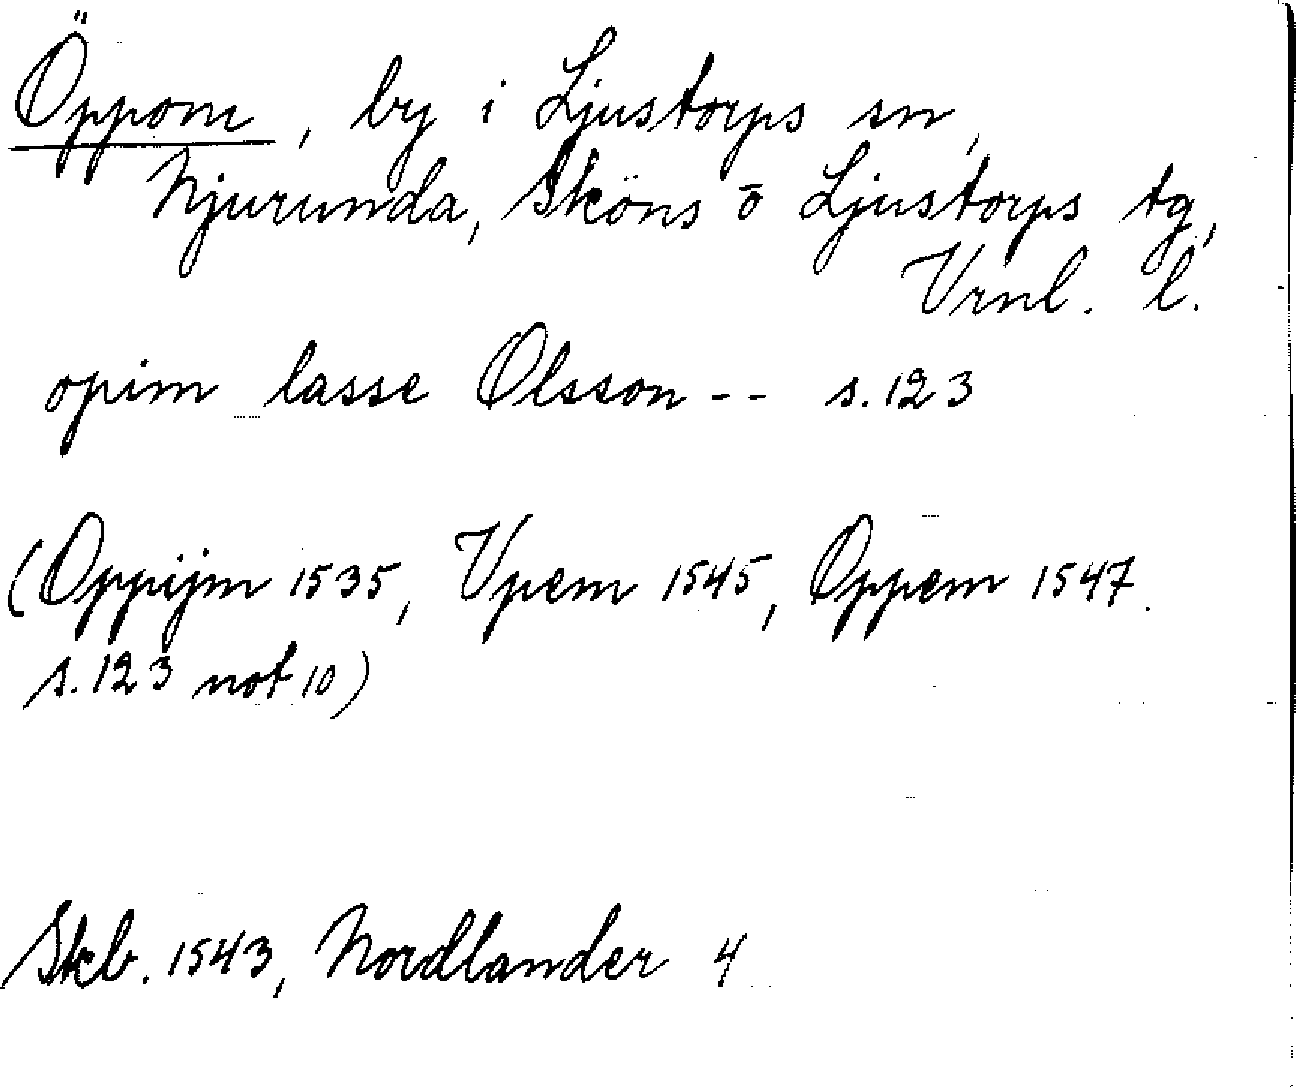 Öppom, by i Ljustorps sn,
Njurunda, Sköns o Ljustorps tg,
Vrnl. l.
opim lasse Olsson -- s. 123
(Oppijm 1535, Vpem 1545, Oppem 1547.
s. 123 not 10)
Skb. 1543, Nordlander 4